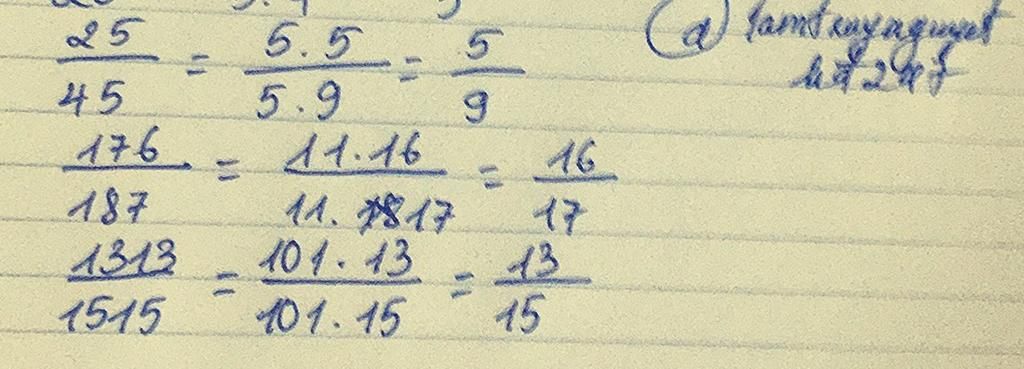 25/45 = 5.5/5.9 = 5/9
176/187 = 11.16/11.17 = 16/17
1313/1515 = 101.13/101.15 = 13/15
a